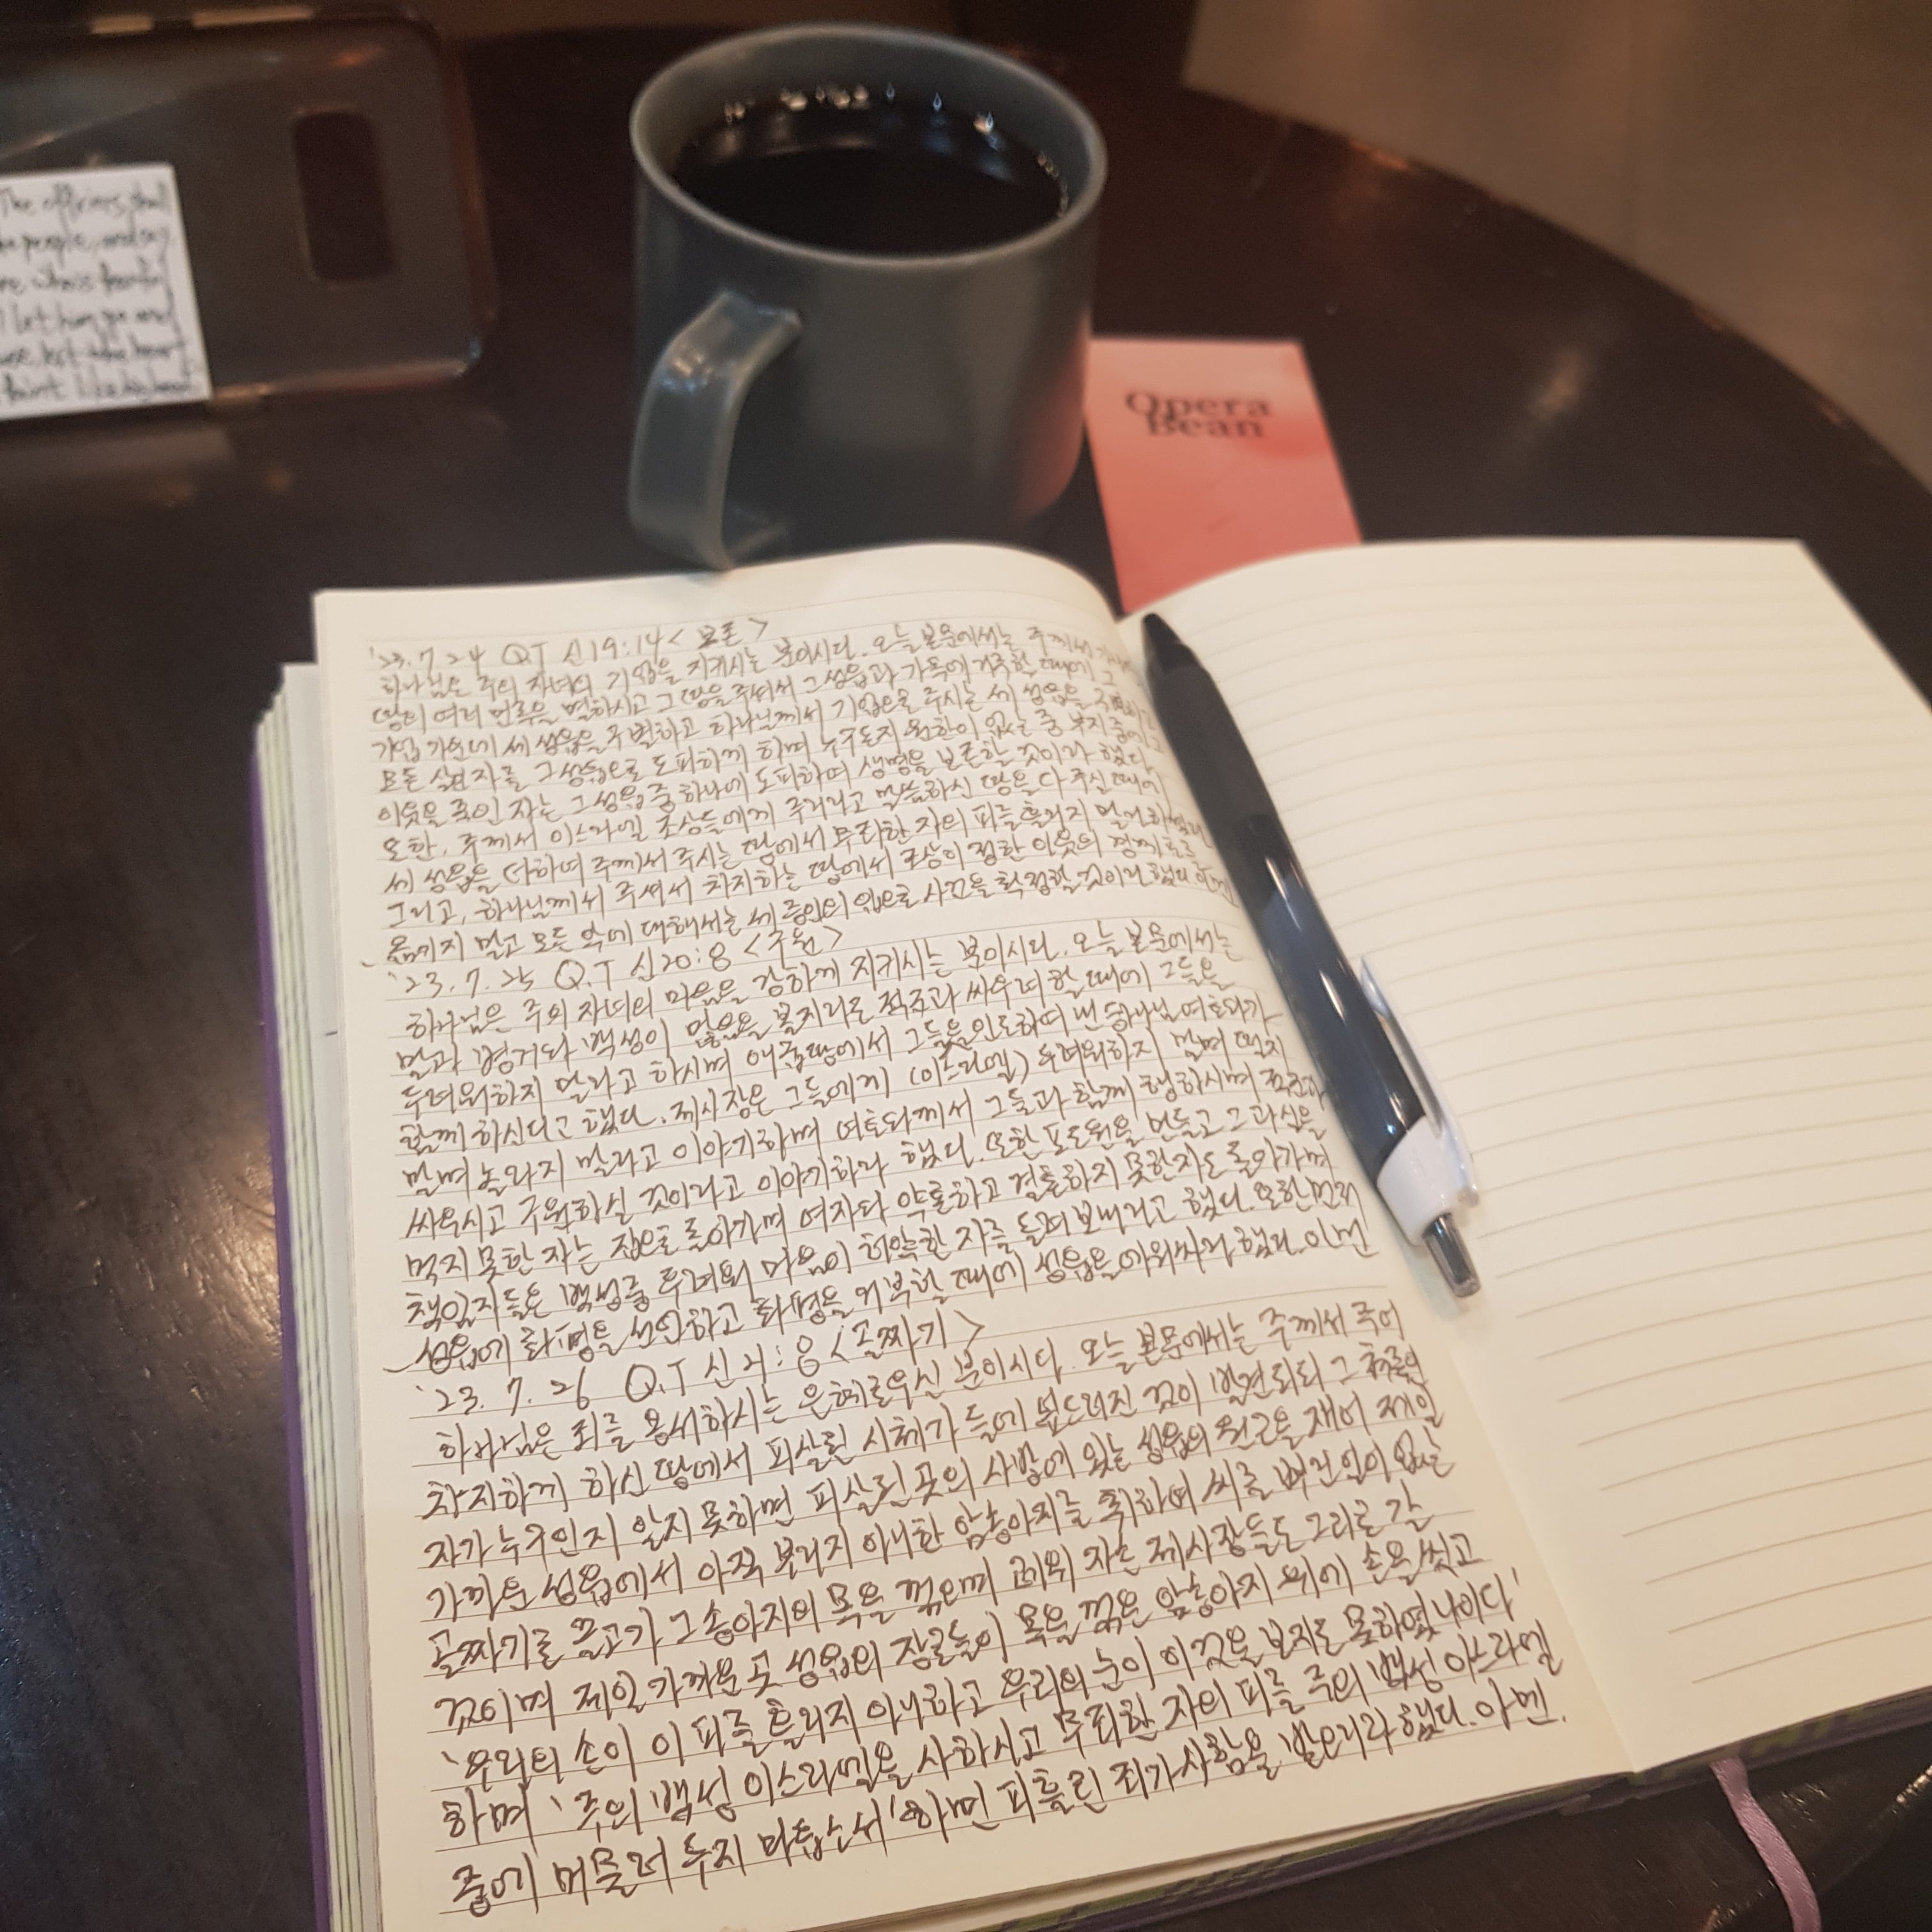 The officers shall
people, and say
who is fearful
let him go and
lest the heart
faint like his heart
Opera
Bean
'23. 7. 24 Q.T 신19:14 < 보존 >
하나님은 주의 자녀의 기업을 지키시는 분이시다. 오늘 본문에서는 주께서
땅의 여러 민족을 멸하시고 그 땅을 주셔서 그 성읍과 가옥에 거주할 때에
기업 가운데 세 성읍을 구별하고 하나님께서 기업으로 주시는 세 성읍을
모든 살인자를 그 성읍으로 도피하게 하며 누구든지 원한이 없는 중 부지중에
이웃을 죽인 자는 그 성읍 중 하나에 도피하여 생명을 보존할 것이라 했다.
또한, 주께서 이스라엘 조상들에게 주리라고 말씀하신 땅을 다 주실 때에
세 성읍을 더하여 주께서 주시는 땅에서 무죄한 자의 피를 흘리지 말라
그리고, 하나님께서 주셔서 차지하는 땅에서 조상이 정한 이웃의 경계표를
옮기지 말고 모든 악에 대해서는 세 증인의 입으로 사건을 확정할 것이라 했다. 아멘
'23. 7. 25 Q.T 신20:8 < 구원 >
하나님은 주의 자녀의 마음을 강하게 지키시는 분이시다. 오늘 본문에서는
말과 병거와 백성이 많음을 볼지라도 적군과 싸우려 할 때에 그들을
두려워하지 말라고 하시며 애굽땅에서 그들을 인도하여 낸 하나님 여호와가
함께 하신다고 했다. 제사장은 그들에게 (이스라엘) 두려워하지 말며 떨지
말며 놀라지 말라고 이야기하며 여호와께서 그들과 함께 행하시며 적군과
싸우시고 구원하실 것이라고 이야기하라 했다. 또한 포도원을 만들고 그 과실을
먹지 못한 자는 집으로 돌아가며 여자와 약혼하고 결혼하지 못한자도 돌아가며
책임자들은 백성중 두려워 마음이 허약한 자를 돌려 보내라고 했다. 또한 먼저
성읍에 화평을 선언하고 화평을 거부할 때에 성읍을 에워싸라 했다. 아멘
'23. 7. 26 Q.T 신21:8 < 골짜기 >
하나님은 죄를 용서하시는 은혜로우신 분이시다. 오늘 본문에서는 주께서 주어
차지하게 하신 땅에서 피살된 시체가 들에 엎드러진 것이 발견되되 그 쳐죽인
자가 누구인지 알지 못하면 피살된 곳의 사방에 있는 성읍의 원근을 재어 제일
가까운 성읍에서 아직 부리지 아니한 암송아지를 취하여 씨를 뿌린 일이 없는
골짜기로 끌고가 그 송아지의 목을 꺾으며 레위 자손 제사장들도 그리로 갈
것이며 제일 가까운 곳 성읍의 장로들이 목을 꺾은 암송아지 위에 손을 씻고
'우리의 손이 이 피를 흘리지 아니하고 우리의 눈이 이것을 보지도 못하였나이다'
하며 '주의 백성 이스라엘을 사하시고 무죄한 자의 피를 주의 백성 이스라엘
중에 머물러 두지 마옵소서' 하면 피흘린 죄가 사함을 받으리라 했다. 아멘.